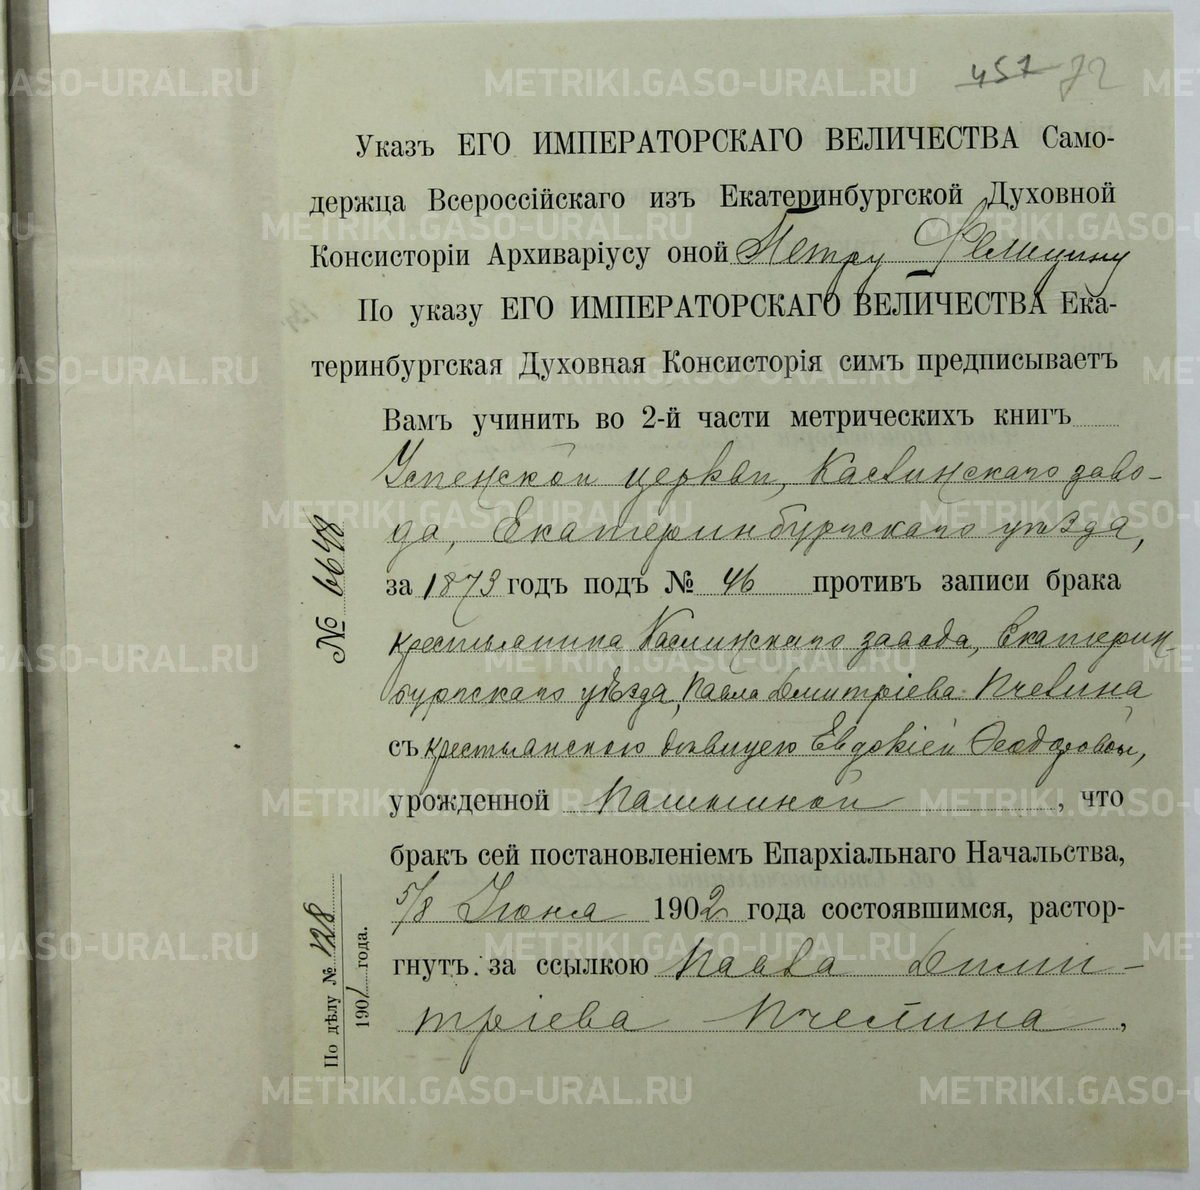 457 72
Указъ ЕГО ИМПЕРАТОРСКАГО ВЕЛИЧЕСТВА Само-
держца Всероссійскаго изъ Екатеринбургской Духовной
Консисторіи Архиваріусу оной Петру
По указу ЕГО ИМПЕРАТОРСКАГО ВЕЛИЧЕСТВА Ека-
теринбургская Духовная Консисторія симъ предписываетъ
Вамъ учинить во 2-й части метрическихъ книгъ
Успенской церкви, Каслинскаго заво-
да, Екатеринбургскаго уѣзда,
за 1873 годъ подъ № 46 противъ записи брака
крестьянина Каслинскаго завода, Екатерин-
бургскаго уѣзда, Павла Димитріева Пчелина
съ крестьянскою дѣвицею Евдокіей Ѳеодоровой,
урожденной , что
бракъ сей постановленіемъ Епархіальнаго Начальства,
5/8 Іюня 1902 года состоявшимся, растор-
гнутъ за ссылкою Павла Дими-
тріева Пчелина,
№ 6648
По дѣлу № 128
1901 года.
METRIKI.GASO-URAL.RU